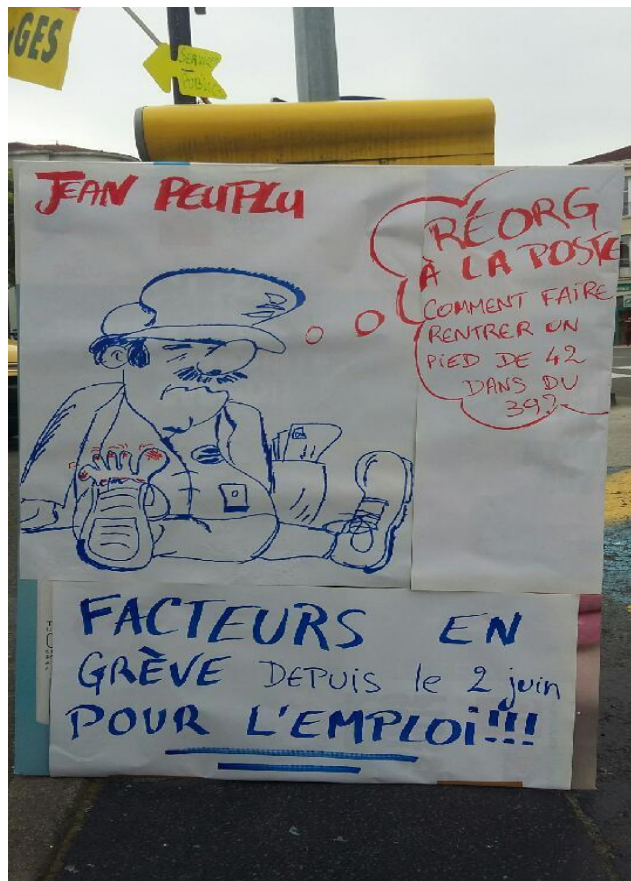 GES
SERVICE
PUBLIC
JEAN PEUPLU
RÉORG
À LA POSTE
COMMENT FAIRE
RENTRER UN
PIED DE 42
DANS DU
39?
FACTEURS EN
GRÈVE DEPUIS le 2 juin
POUR L'EMPLOI!!!